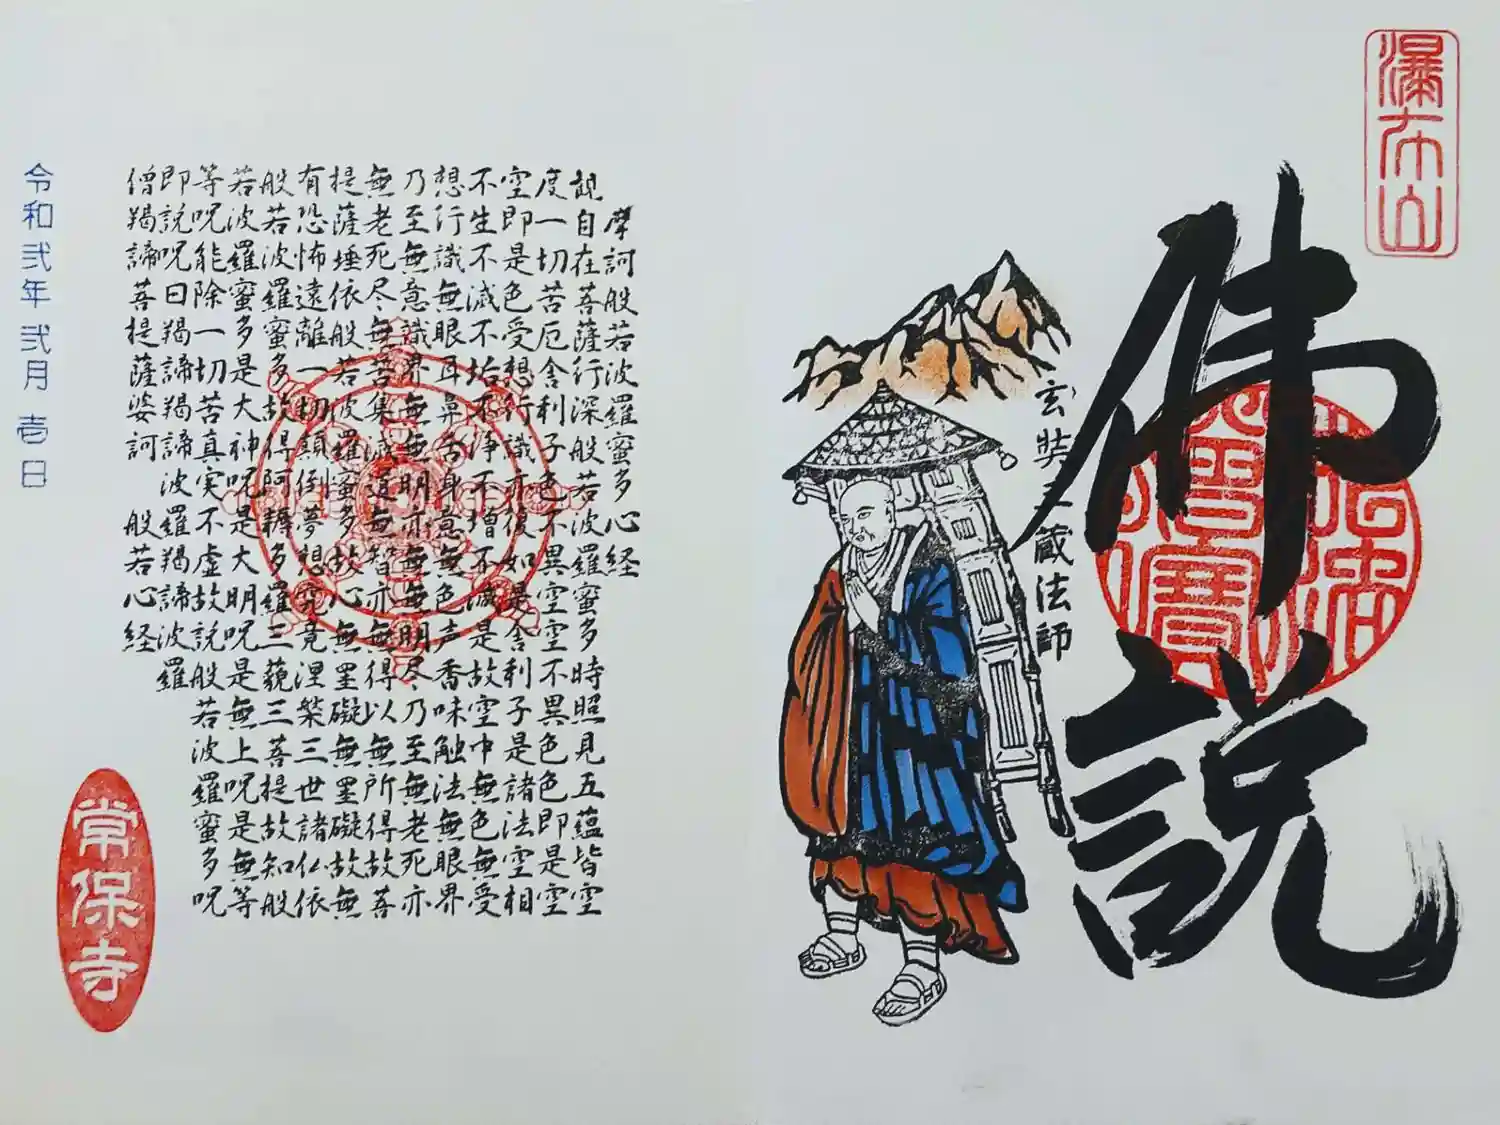 瀑布山
佛説
玄奘三蔵法師
摩訶般若波羅蜜多心経
観自在菩薩行深般若波羅蜜多時照見五蘊皆空
度一切苦厄舎利子色不異空空不異色色即是空
空即是色受想行識亦復如是舎利子是諸法空相
不生不滅不垢不浄不増不減是故空中無色無受
想行識無眼耳鼻舌身意無色声香味触法無眼界
乃至無意識界無無明亦無無明尽乃至無老死亦
無老死尽無苦集滅道無智亦無得以無所得故菩
提薩埵依般若波羅蜜多故心無罣礙無罣礙故無
有恐怖遠離一切顛倒夢想究竟涅槃三世諸仏依
般若波羅蜜多故得阿耨多羅三藐三菩提故知般
若波羅蜜多是大神呪是大明呪是無上呪是無等
等呪能除一切苦真実不虚故説般若波羅蜜多呪
即説呪曰羯諦羯諦波羅羯諦波羅
僧羯諦菩提薩婆訶 般若心経
令和弐年弐月壱日
常保寺